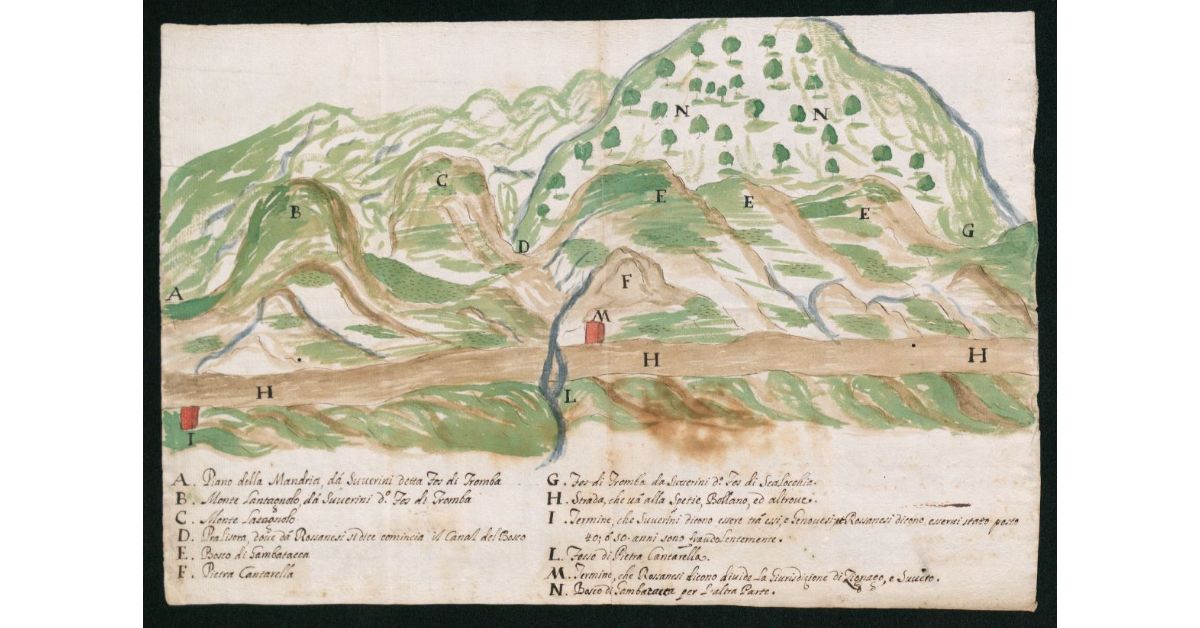 N
N
C
E
B
E
E
G
D
F
A
M
H
H
H
L
I
A. Piano della Mandria, da Suverini detta Fos di Tromba
B. Monte Lantagnolo, da Suverini d.º Fos di Tromba
C. Monte
D. dove da Rossanesi si dice comincia il Canal del Bosco
E. Bosco di Gambatacca
F. Pietra Cantarella
G. Fos di Tromba da Suverini d.º Fos di
H. Strada, che và alla Spetie, Bollano, ed altrove.
I. Termine, che Suverini dicono essere trà essi, e Genovesi, Rossanesi dicono esservi stato posto
40, ò 50 anni sono fraudolentemente.
L. Fosso di Pietra Cantarella.
M. Termine, che Rossanesi dicono divide la Giurisdizione di Zignago, e Suvero.
N. Bosco di Gambatacca per l'altra Parte.